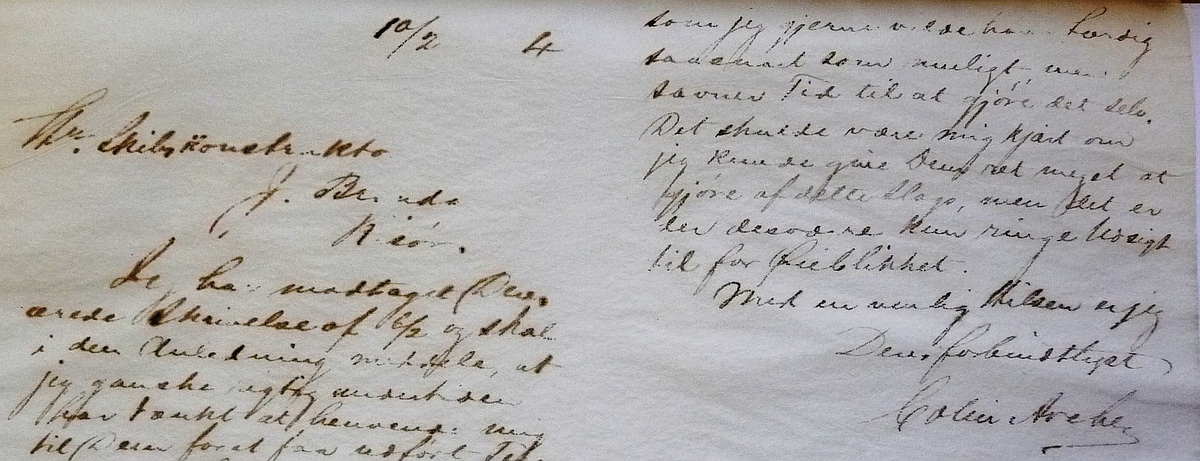 10/2 4
Hr. Skibskonstruktør
J. Brunda
Risør.
Jeg har modtaget Deres
ærede Skrivelse af 6/2 og skal
i den Anledning meddele, at
jeg ganske rigtig undertiden
har tænkt at henvende mig
til Dem foret faa udført
som jeg gjerne vilde have færdig
saasnart som muligt men
savner Tid til at gjøre det selv.
Det skulde være mig kjært om
jeg kunde give Dem ret meget at
gjøre af dette Slags, men det er
der desværre kun ringe Udsigt
til for Øieblikket.
Med en venlig Hilsen er jeg
Deres forbindtligst
Colin Archer